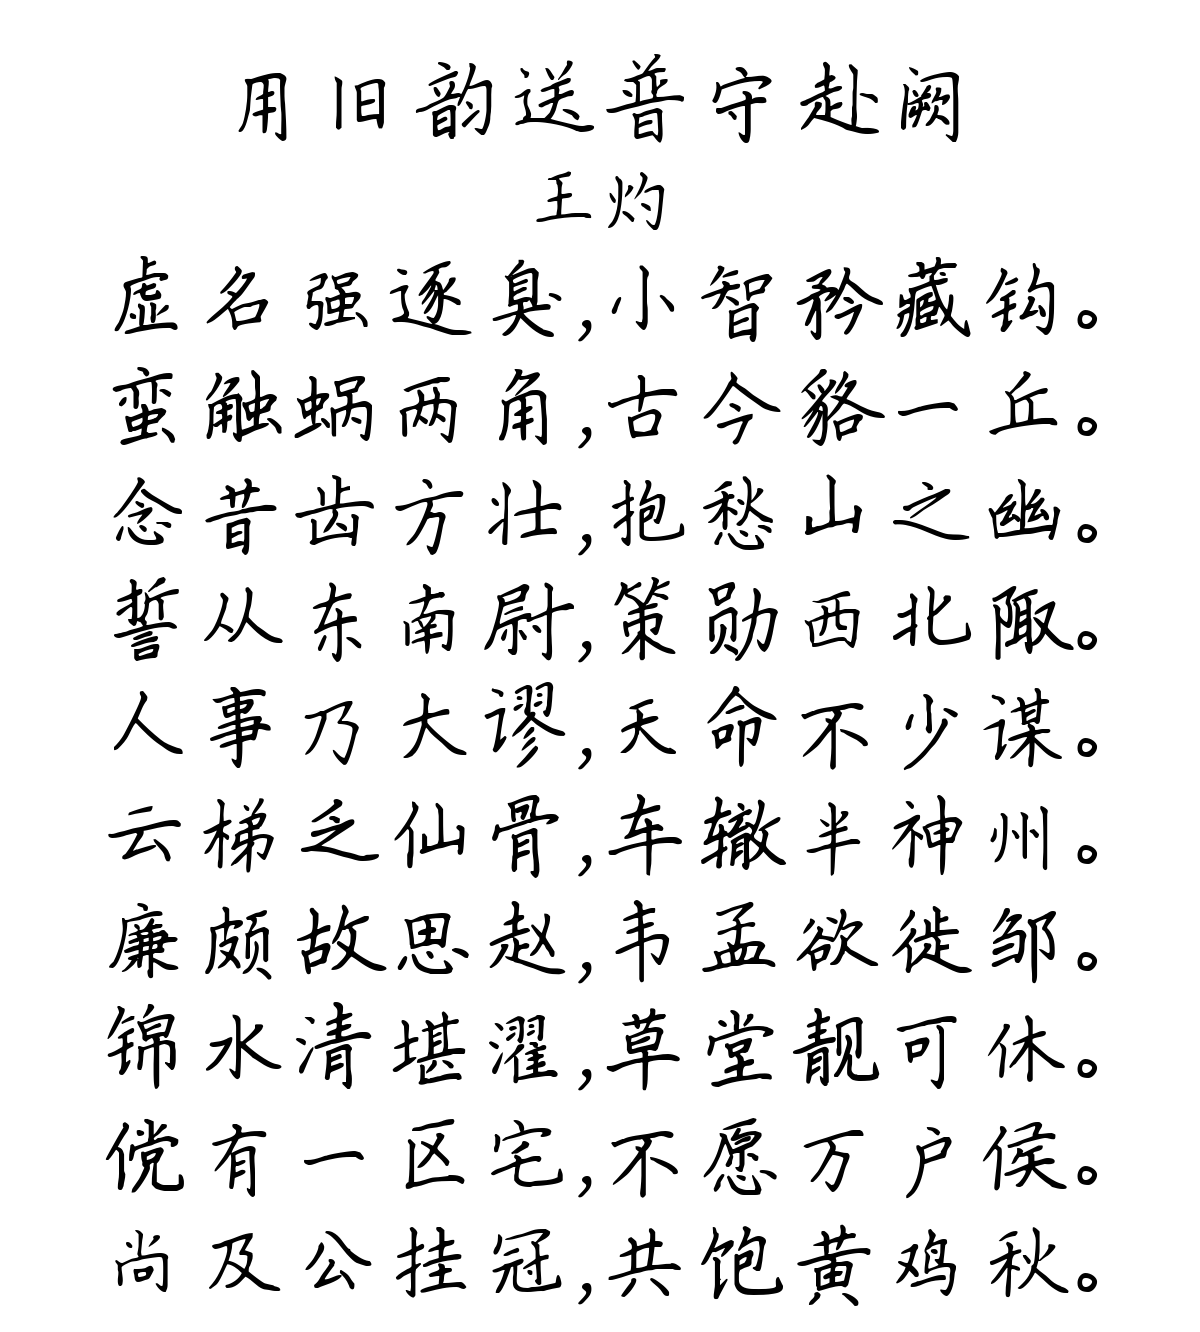 用旧韵送普守赴阙
王灼
虚名强逐臭,小智矜藏钩。
蛮触蜗两角,古今貉一丘。
念昔齿方壮,抱愁山之幽。
誓从东南尉,策勋西北陬。
人事乃大谬,天命不少谋。
云梯乏仙骨,车辙半神州。
廉颇故思赵,韦孟欲徙邹。
锦水清堪濯,草堂靓可休。
傥有一区宅,不愿万户侯。
尚及公挂冠,共饱黄鸡秋。